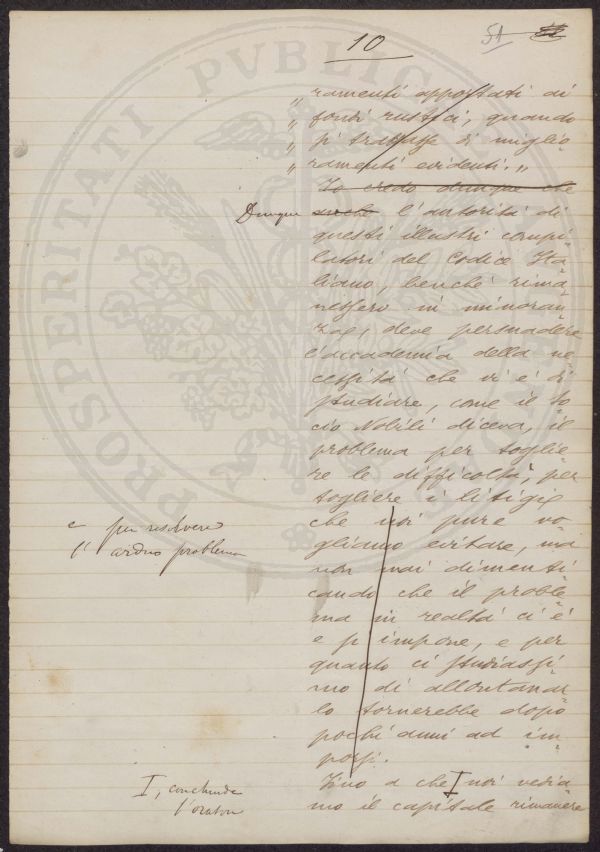 10
51
„ ramenti apportati di
„ fondi rustici, quando
„ si trattasse di miglio
„ ramenti evidenti. „
Io credo dunque che
Dunque anche l'autorità di
questi illustri compi
latori del Codice Ita
liano, benchè rima
nessero in minoran
za, deve persuadere
l'accademia della ne
cessità che vi è di
studiare, come il So
cio Nobili diceva, il
problema per toglie
re le difficoltà, per
togliere i litigi
e per risolvere
l'arduo problema
che noi pure vo
gliamo evitare, ma
non mai dimenti
cando che il proble
ma in realtà ci è
e si impone, e per
quanto ci studiassi
mo di allontanar
lo tornerebbe dopo
pochi anni ad im
porsi.
I, conchiude
l'oratore
Fino a che I noi vedia
mo il capitale rimanere
PROSPERITATI PVBLICAE